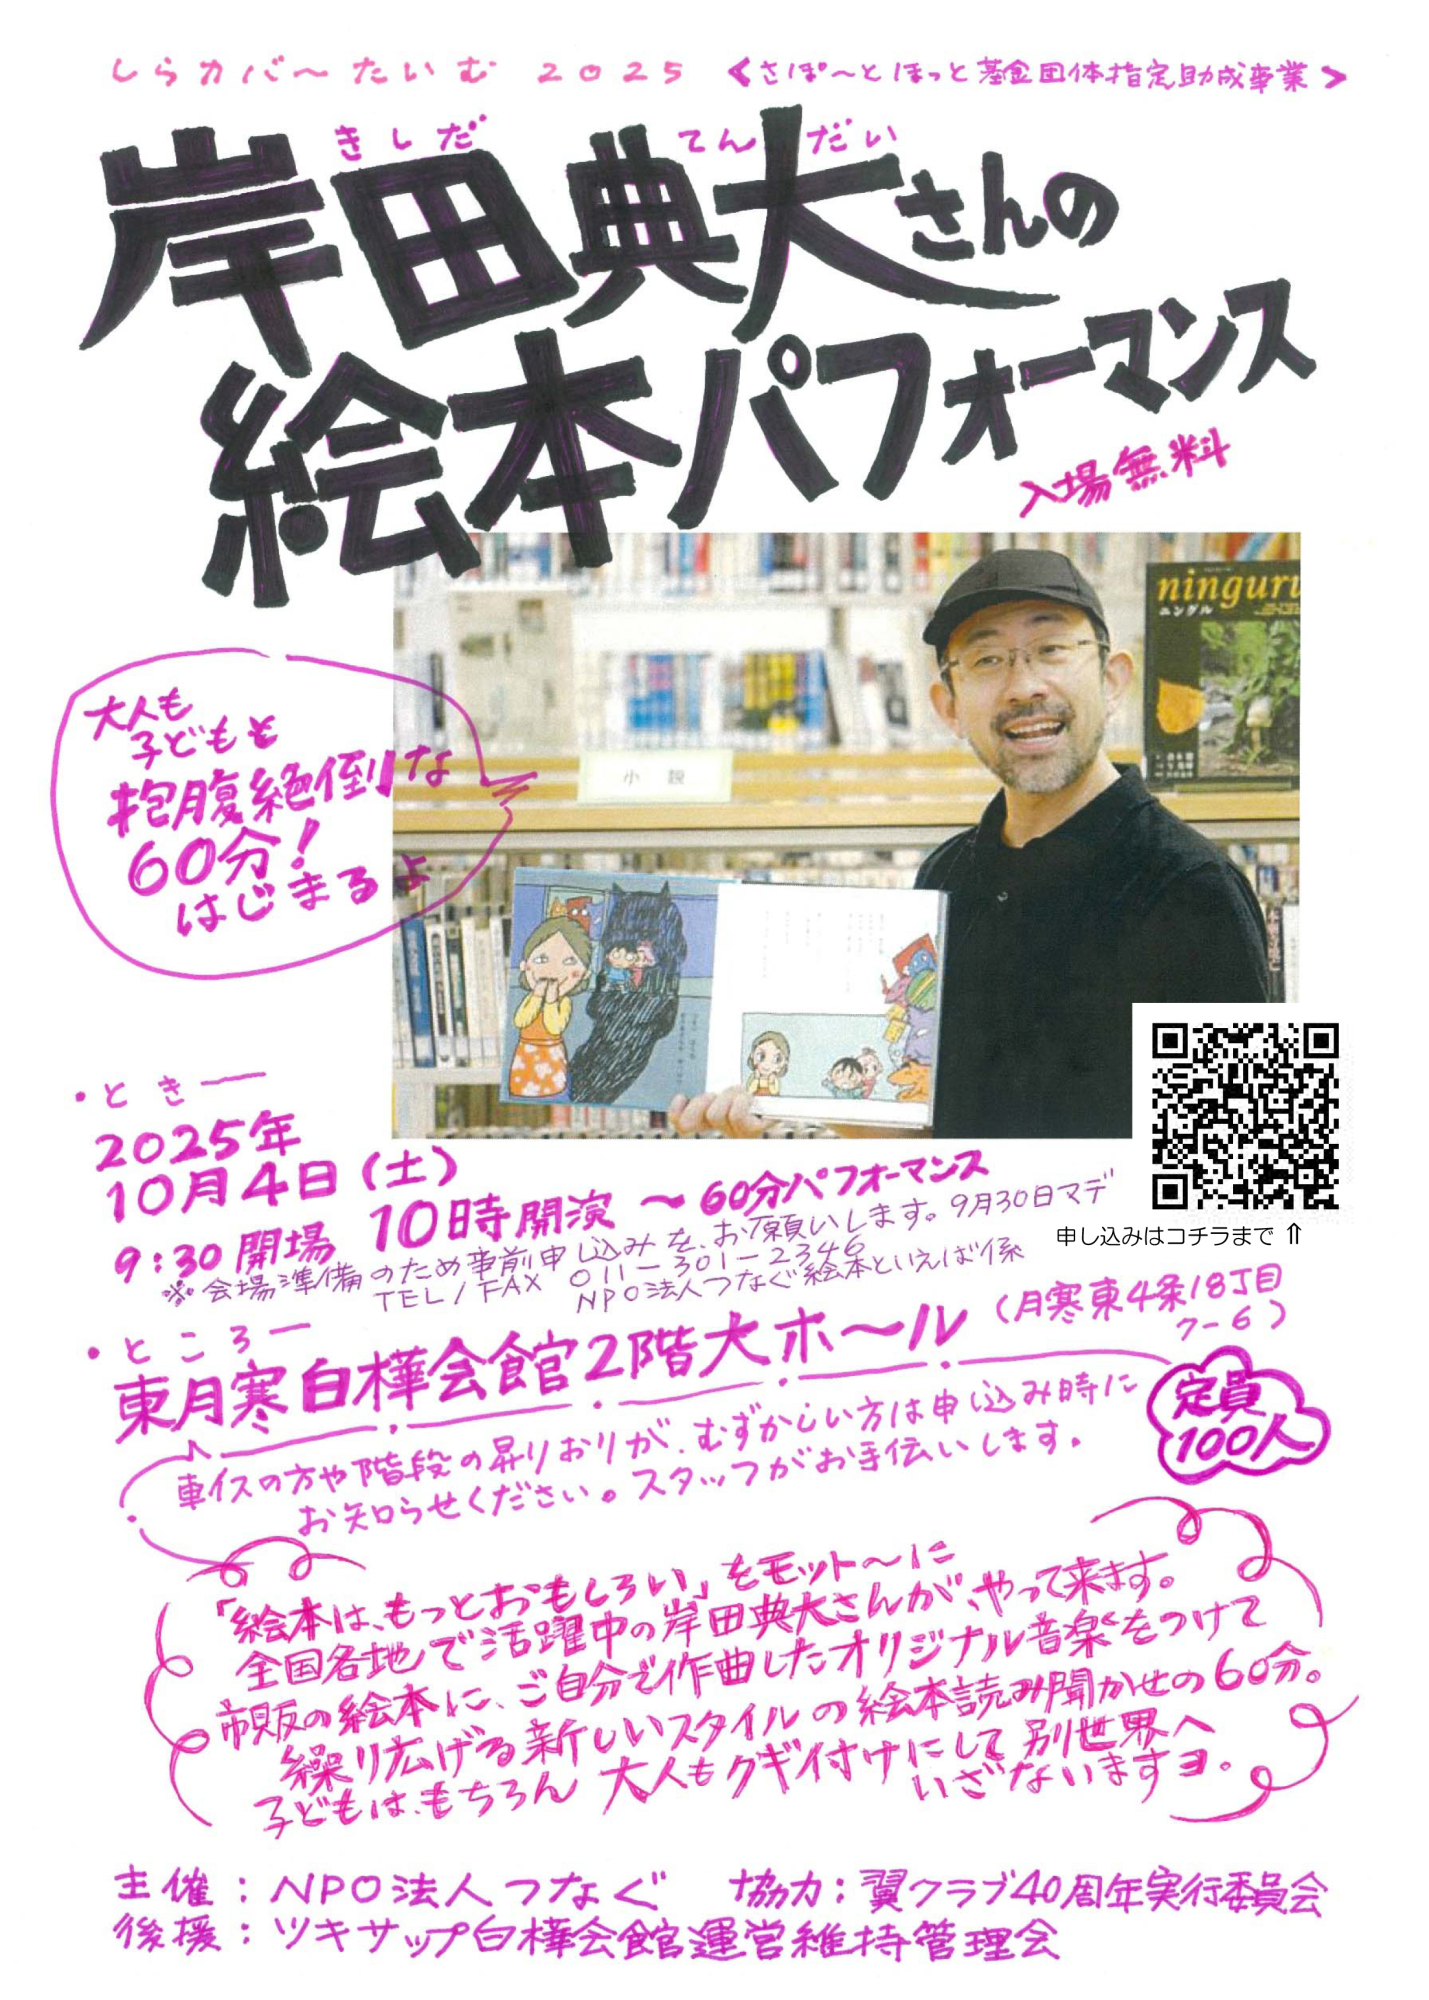 しらカバ〜たいむ 2025 <さぽ〜とほっと基金団体指定助成事業>
きしだ てんだい
岸田典大さんの
絵本パフォーマンス
入場無料
ninguru
ニングル
大人も
子どもも
抱腹絶倒な
60分!
はじまるよ
小説
・とき―
2025年
10月4日(土)
9:30開場 10時開演 〜60分パフォーマンス
※会場準備のため事前申し込みを、お願いします。9月30日マデ
TEL/FAX 011-301-2346
NPO法人つなぐ絵本といえば係
申し込みはコチラまで⇑
・ところ―
東月寒白樺会館2階大ホ〜ル (月寒東4条18丁目
7-6)
定員
100人
車イスの方や階段の昇りおりが、むずかしい方は申し込み時に
お知らせください。スタッフがお手伝いします。
「絵本は、もっとおもしろい」をモット〜に
全国各地で活躍中の岸田典大さんが、やって来ます。
市販の絵本に、ご自分で作曲したオリジナル音楽をつけて
繰り広げる新しいスタイルの絵本読み聞かせの60分。
子どもは、もちろん 大人もクギ付けにして 別世界へ
いざないますヨ。
主催:NPO法人つなぐ 協力:翼クラブ40周年実行委員会
後援:ツキサップ白樺会館運営維持管理会